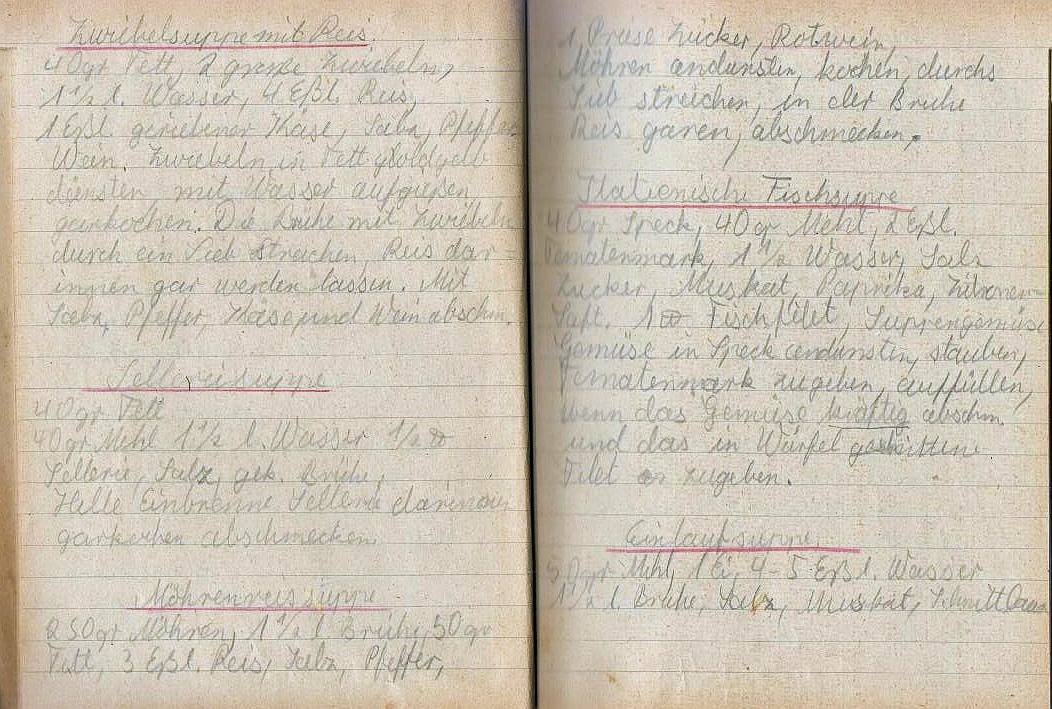 Zwiebelsuppe mit Reis.
40gr Fett, 2 große Zwiebeln,
1 1/2 l. Wasser, 4 Eßl. Reis,
1 Eßl. geriebener Käse, Salz, Pfeffer
Wein. Zwiebeln in Fett goldgelb
dünsten mit Wasser aufgießen
garkochen. Die Brühe mit Zwiebeln
durch ein Sieb streichen, Reis dar=
innen gar werden lassen. Mit
Salz, Pfeffer, Käse und Wein abschm.
Selleriesuppe
40gr Fett
40gr Mehl 1 1/2 l. Wasser 1/2 ℔
Sellerie, Salz, gek. Brühe,
Helle Einbrenne Sellerie darinnen
garkochen abschmecken.
Möhrenreissuppe
250gr Möhren, 1 1/2 l Brühe, 50gr
Fett, 3 Eßl. Reis, Salz, Pfeffer,
1 Priese Zucker, Rotwein,
Möhren andünsten, kochen, durchs
Sieb streichen, in der Brühe
Reis garen, abschmecken.
Italienische Fischsuppe
40gr Speck, 40gr Mehl, 2 Eßl.
Tomatenmark, 1 1/2 Wasser, Salz
Zucker, Muskat, Paprika, Zitronen=
Saft. 1 ℔ Fischfilet, Suppengemüse
Gemüse in Speck andünsten, stauben,
Tomatenmark zugeben, auffüllen,
wenn das Gemüse kräftig abschm.
und das in Würfel geschnittene
Filet zugeben.
Einlaufsuppe
50gr Mehl, 1 Ei, 4-5 Eßl. Wasser
1 1/2 l. Brühe, Salz, Muskat, Schnittlauch